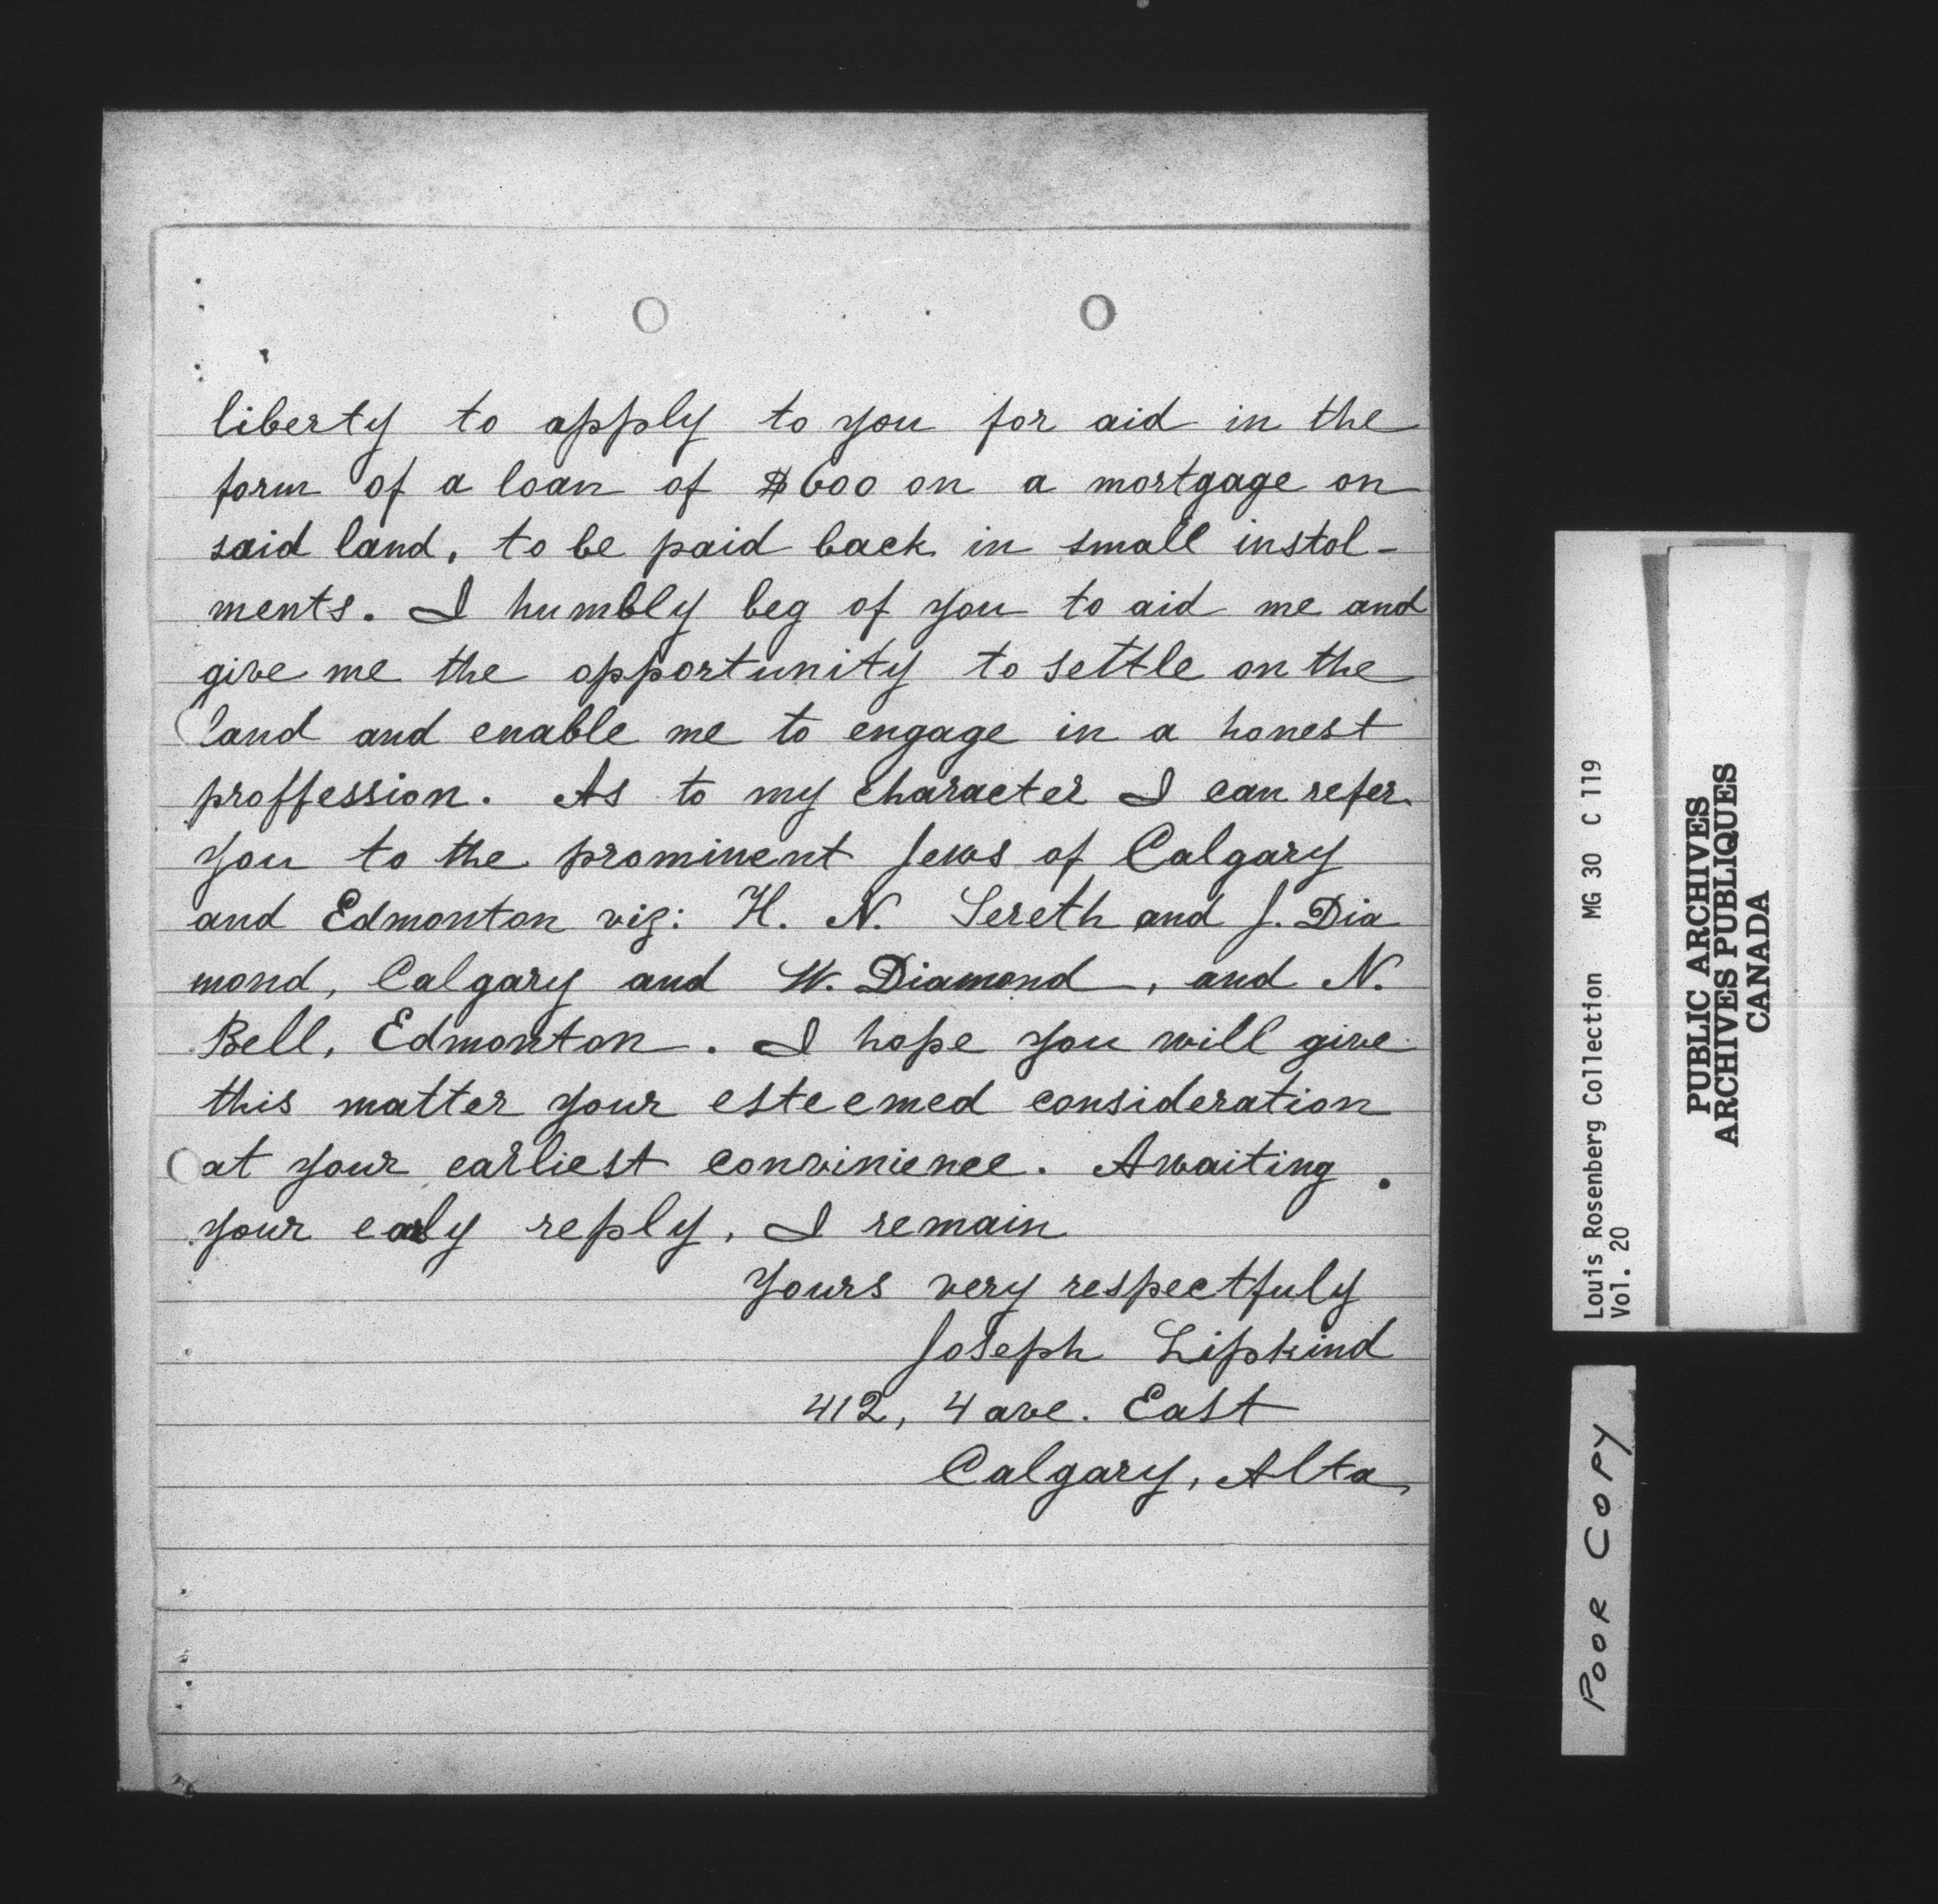 liberty to apply to you for aid in the
form of a loan of $600 on a mortgage on
said land, to be paid back in small instol-
ments. I humbly beg of you to aid me and
give me the opportunity to settle on the
land and enable me to engage in a honest
proffession. As to my character I can refer
you to the prominent Jews of Calgary
and Edmonton viz: H. N. Sereth and J. Dia
mond, Calgary and W. Diamond, and N.
Bell, Edmonton. I hope you will give
this matter your esteemed consideration
at your earliest convinience. Awaiting
your early reply, I remain
Yours very respectfuly
Joseph Lipkind
412, 4 ave. East
Calgary, Alta,
Louis Rosenberg Collection MG 30 C 119
Vol. 20
PUBLIC ARCHIVES
ARCHIVES PUBLIQUES
CANADA
POOR COPY